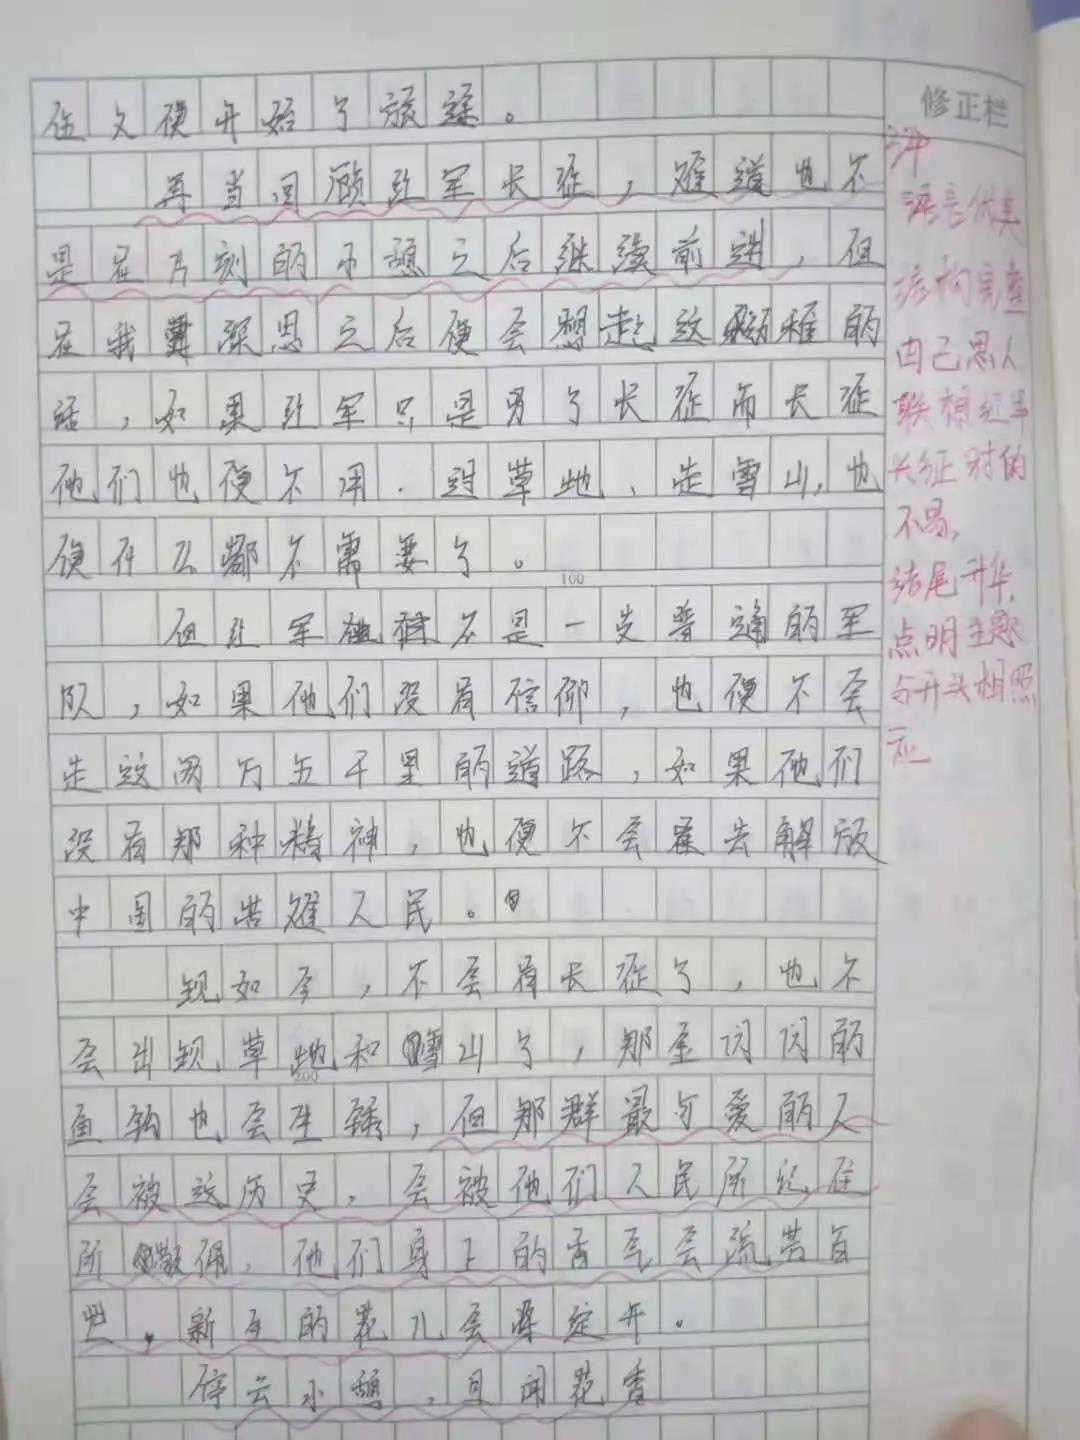 伍又便开始了旅途。
再当回顾红军长征，难道也不
是在片刻的小憩之后继续前进，但
在我深思之后便会想起这幼稚的
话，如果红军只是为了长征而长征
他们也便不用．过草地、走雪山，也
便什么都不需要了。
100
但红军不是一支普通的军
队，如果他们没有信仰，也便不会
走这两万五千里的道路，如果他们
没有那种精神，也便不会去解放
中国的苦难人民。
现如今，不会有长征了，也不
会出现草地和雪山了，那金闪闪的
200
鱼钩也会生锈，但那群最可爱的人
会被这历史，会被他们人民所纪住
所敬佩，他们身上的香气会流芳百
世，新生的花儿会绽开。
停云小憩，且闻花香
修正栏
语言优美
结构完整
由己思人
联想红军
长征时的
不易，
结尾升华，
点明主题
与开头相照
应